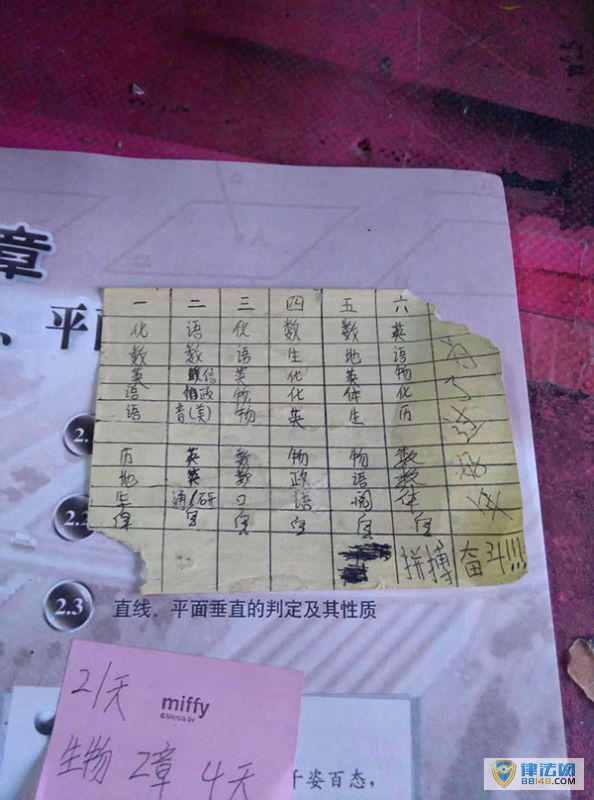 章
、平面
一 二 三 四 五 六
化 语 化 数 数 英
数 数 语 生 地 语
英 信 英 化 英 物
语 政 物 化 体 化
语 音(美) 物 英 生 历
历 英 数 物 物 数
地 英 数 政 语 数
生 通/研 口 语 阅 体
体
为
了
这
拼搏 奋斗!!!
2.
2.2
2.3 直线、平面垂直的判定及其性质
21天
miffy
©Mercis bv
生物 2章 4天
千姿百态,
律法网
88148.COM